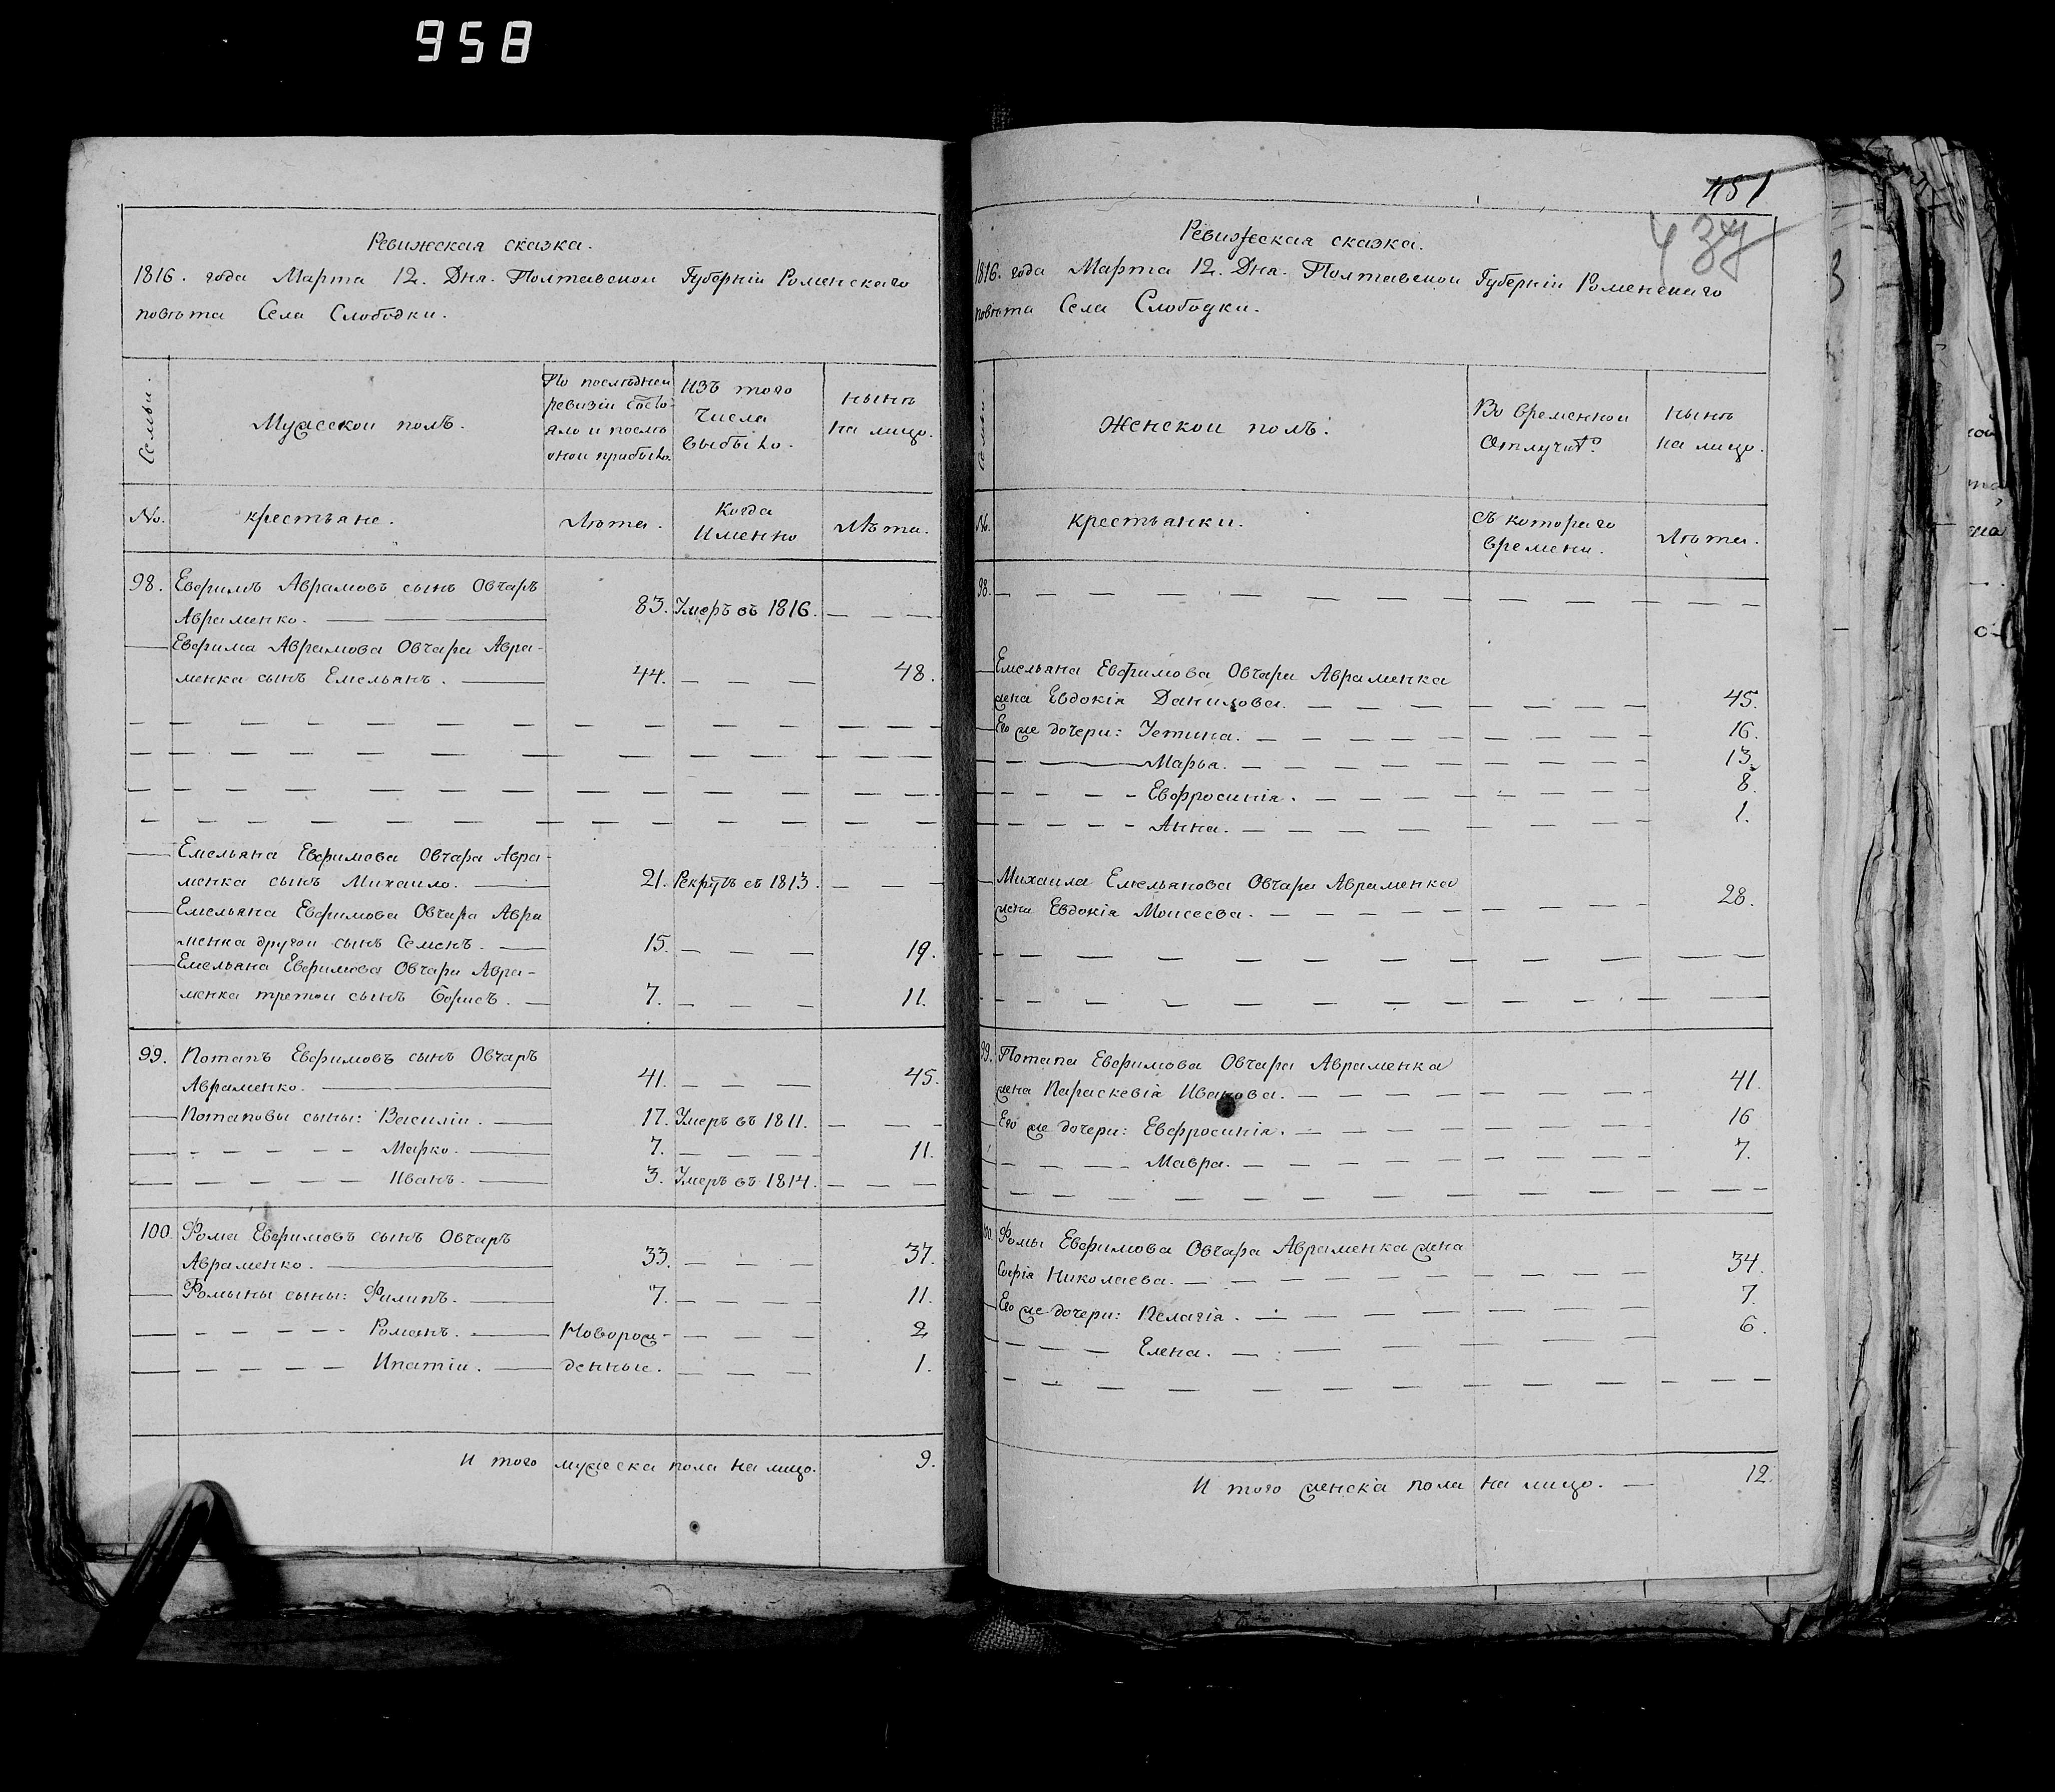 958
Ревижская сказка.
1816. года Марта 12. Дня. Полтавской Губерніи Роменскаго
повѣта Села Слободки.
Семьи.
Мужеской полъ.
По послѣдней
ревизіи состо-
яло и послѣ
оной прибыло.
Изъ того
числа
выбыло.
нынѣ
на лицо.
No.
крестьяне.
Лѣта.
Когда
Именно
Лѣта.
98. Евфимъ Аврамовъ сынъ Овчаръ
Авраменко. 83. Умеръ въ 1816.
Евфима Аврамова Овчара Авра-
менка сынъ Емельянъ. 44. 48.
Емельяна Евфимова Овчара Авра-
менка сынъ Михаило. 21. Рекрутъ въ 1813.
Емельяна Евфимова Овчара Авра
менка другой сынъ Семенъ. 15. 19.
Емельяна Евфимова Овчара Авра-
менка третой сынъ Борисъ. 7. 11.
99. Потапъ Евфимовъ сынъ Овчаръ
Авраменко. 41. 45.
Потаповы сыны: Василій. 17. Умеръ въ 1811.
Марко. 7. 11.
Иванъ. 3. Умеръ въ 1814.
100. Фома Евфимовъ сынъ Овчаръ
Авраменко. 33. 37.
Фомыны сыны: Филипъ. 7. 11.
Романъ. Новорож- 2
Ипатій. денные. 1.
И того мужеска пола на лицо. 9.
451
437
Ревижская сказка.
1816. года Марта 12. Дня. Полтавской Губерніи Роменскаго
повѣта Села Слободки.
Семьи.
Женской полъ.
Во временной
Отлучкѣ.
нынѣ
на лицо.
No.
крестьянки.
съ котораго
времени.
Лѣта.
98.
Емельяна Евфимова Овчара Авраменка
жена Евдокія Данилова. 45.
Его же дочери: Устина. 16.
Марья. 13.
Евфросинія. 8.
Анна. 1.
Михаила Емельянова Овчара Авраменка
жена Евдокія Моисеева. 28.
99. Потапа Евфимова Овчара Авраменка
жена Параскевія Иванова. 41.
Его же дочери: Евфросинія. 16
Мавра. 7.
100. Фомы Евфимова Овчара Авраменка жена
Софія Николаева. 34.
Его же дочери: Пелагія. 7.
Елена. 6.
И того женска пола на лицо. 12.